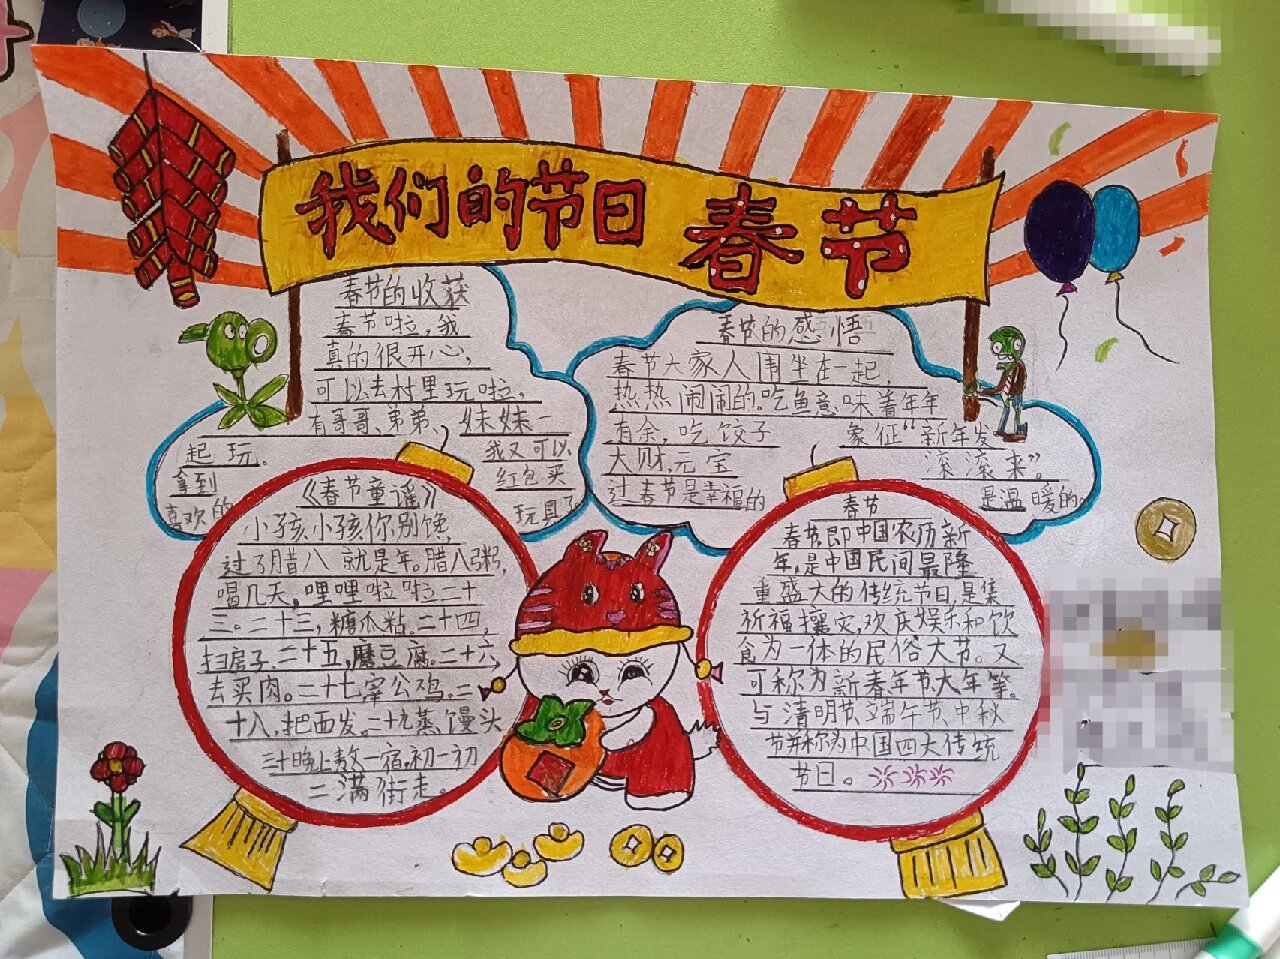 我们的节日 春节
春节的收获
春节啦，我
真的很开心，
可以去村里玩啦，
有哥哥、弟弟、妹妹一
起玩。我又可以
拿到红包买
喜欢的玩具了
春节的感悟
春节大家人围坐在一起，
热热闹闹的。吃鱼意味着年年
有余，吃饺子象征“新年发
大财，元宝滚滚来”。
过春节是幸福的是温暖的。
《春节童谣》
小孩小孩你别馋，
过了腊八就是年。腊八粥，
喝几天，哩哩啦啦二十
三。二十三，糖瓜粘。二十四，
扫房子。二十五，磨豆腐。二十六，
去买肉。二十七宰公鸡。二
十八，把面发。二十九蒸馒头
三十晚上熬一宿，初一初
二满街走。
春节
春节，即中国农历新
年，是中国民间最隆
重盛大的传统节日，是集
祈福攘灾，欢庆娱乐和饮
食为一体的民俗大节。又
可称为新春年节大年等。
与清明节端午节中秋
节并称为中国四大传统
节日。